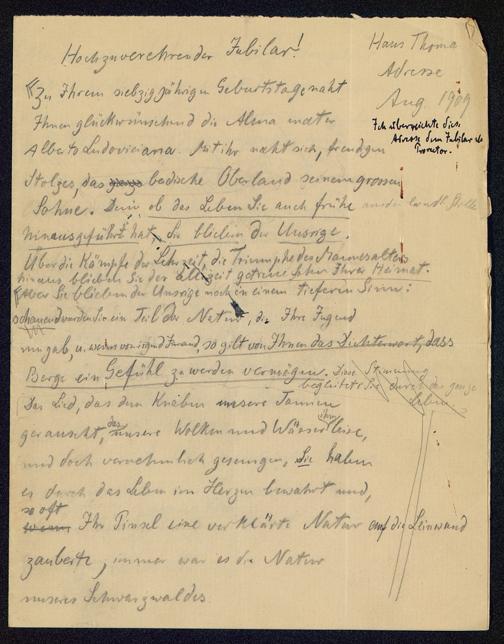 Hans Thoma
Adresse
Aug. 1909
Ich überreichte diese
Adresse dem Jubilar als
Prorector.
Hochzuverehrender Jubilar!
Zu Ihrem siebzigjährigen Geburtstage naht
Ihnen glückwünschend die Alma mater
Alberto Ludoviciana. Mit ihr naht sich, freudigen
Stolzes, das ganze badische Oberland seinem grossen
Sohne. Denn ob das Leben Sie auch frühe
hinausgeführt hat, Sie blieben der Unsrige.
Über die Kämpfe der Lehrzeit, die Triumphe des Mannesalters
hinaus blieben Sie der allezeit getreue Sohn Ihrer Heimat.
Aber Sie blieben der Unsrige noch in einem tieferen Sinn:
schauend wurden Sie ein Teil der Natur, die Ihre Jugend
umgab, u. wenn von irgend Jemand, so gilt von Ihnen das Dichterwort, dass
Berge ein Gefühl zu werden vermögen. Diese Stimmung
begleitete Sie durch das ganze
Leben.
Das Lied, das dem Knaben unsere Tannen
gerauscht, das unsere Wolken und Wässer ihm leise,
und doch vernehmlich gesungen, Sie haben
es durch das Leben im Herzen bewahrt und,
so oft
wenn Ihr Pinsel eine verklärte Natur auf die Leinwand
zauberte, immer war es die Natur
unseres Schwarzwaldes